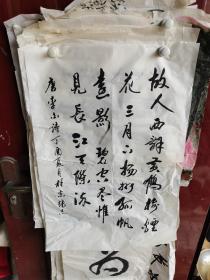 故人西辭黃鶴樓煙
花三月下揚州孤帆
遠影碧空尽惟
見長江天際流
唐李白詩丁酉夏月
為